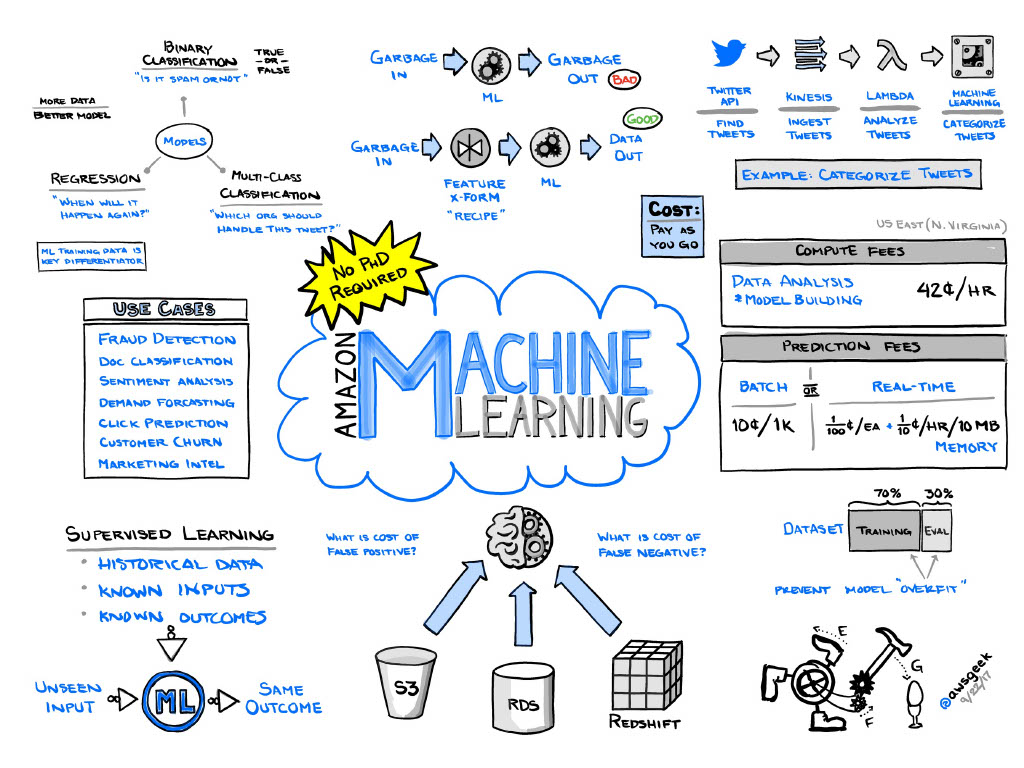 BINARY
CLASSIFICATION
"IS IT SPAM OR NOT"
TRUE
-OR-
FALSE
MORE DATA
BETTER MODEL
MODELS
REGRESSION
"WHEN WILL IT
HAPPEN AGAIN?"
MULTI-CLASS
CLASSIFICATION
"WHICH ORG SHOULD
HANDLE THIS TWEET?"
ML TRAINING DATA IS
KEY DIFFERENTIATOR
GARBAGE
IN
ML
GARBAGE
OUT
BAD
GARBAGE
IN
FEATURE
X-FORM
"RECIPE"
ML
GOOD
DATA
OUT
TWITTER
API
FIND
TWEETS
KINESIS
INGEST
TWEETS
LAMBDA
ANALYZE
TWEETS
MACHINE
LEARNING
CATEGORIZE
TWEETS
EXAMPLE: CATEGORIZE TWEETS
COST:
PAY AS
YOU GO
US EAST (N. VIRGINIA)
COMPUTE FEES
DATA ANALYSIS
& MODEL BUILDING
42¢/HR
PREDICTION FEES
BATCH
OR
REAL-TIME
10¢/1K
1/100¢/EA + 1/10¢/HR/10 MB
MEMORY
NO PHD
REQUIRED
AMAZON
MACHINE
LEARNING
USE CASES
FRAUD DETECTION
DOC CLASSIFICATION
SENTIMENT ANALYSIS
DEMAND FORCASTING
CLICK PREDICTION
CUSTOMER CHURN
MARKETING INTEL
SUPERVISED LEARNING
• HISTORICAL DATA
• KNOWN INPUTS
• KNOWN OUTCOMES
UNSEEN
INPUT
ML
SAME
OUTCOME
WHAT IS COST OF
FALSE POSITIVE?
WHAT IS COST OF
FALSE NEGATIVE?
S3
RDS
REDSHIFT
70%
30%
DATASET
TRAINING
EVAL
PREVENT MODEL "OVERFIT"
E
G
F
@awsgeek
9/22/17